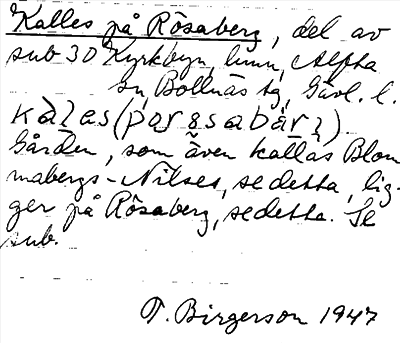 Kalles på Rösaberg, del av
sub 30 Kyrkbyn, lunn, Alfta
sn, Bollnäs tg, Gävl. l.
Gården, som även kallas Blom
mabergs-Nilses, se detta, lig-
ger på Rösaberg, se detta. Se
sub.
T. Birgerson 1947